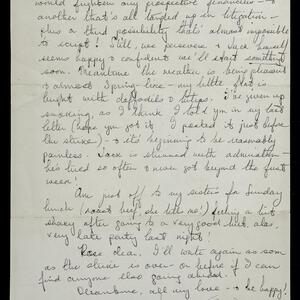 would frighten any prospective financiers - to
another that's all tangled up in litigation -
plus a third possibility that's almost impossible
to script! Still, we persevere & Jack himself
seems happy & confident we'll start something
soon. Meantime the weather is being pleasant
& almost Spring-like - my little flat is
bright with daffodils & tulips. I've given up
smoking, as I think I told you in my last
letter (hope you got it. I posted it just before
the strike) - & it's beginning to be reasonably
painless. Jack is stunned with admiration -
he's tried so often & never got beyond the first
week!
Am just off to my sisters for Sunday
lunch (roast beef, she tells me!) feeling a bit
shaky after going to a very good but, alas,
very late party last night!
Rose dear, I'll write again as soon
as the strike is over or before if I can
find anyone else going abroad.
Meantime, all my love - & be happy!